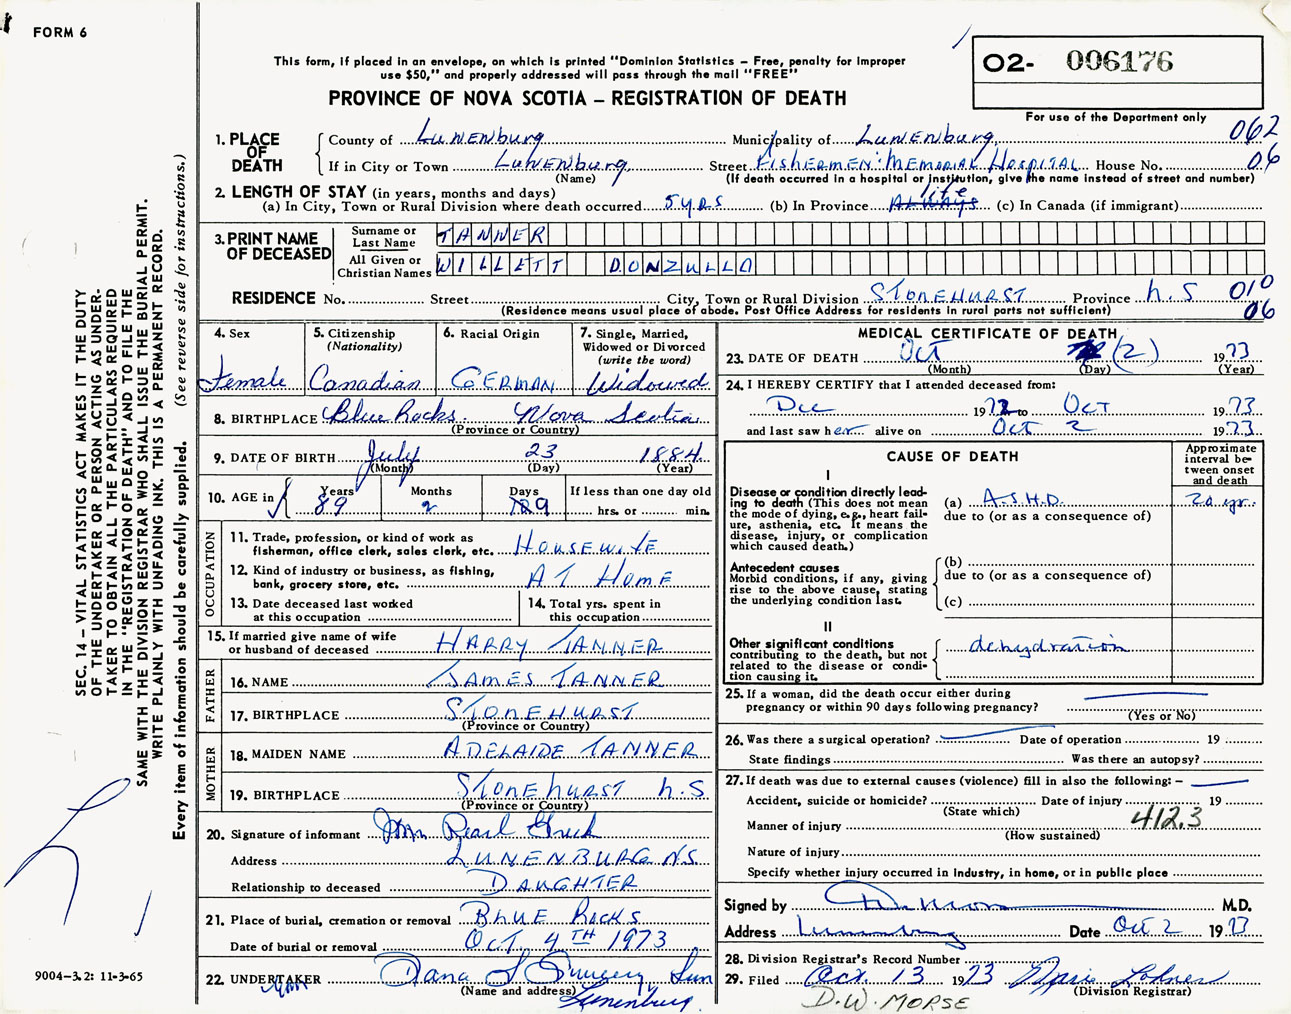 FORM 6
This form, if placed in an envelope, on which is printed "Dominion Statistics – Free, penalty for improper
use $50," and properly addressed will pass through the mail "FREE"
PROVINCE OF NOVA SCOTIA – REGISTRATION OF DEATH
O2- 006176
For use of the Department only
1. PLACE OF DEATH
County of Lunenburg Municipality of Lunenburg 062
If in City or Town Lunenburg Street Fishermen's Memorial Hospital House No. 06
(Name) (If death occurred in a hospital or institution, give the name instead of street and number)
2. LENGTH OF STAY (in years, months and days)
(a) In City, Town or Rural Division where death occurred 5 yrs (b) In Province Always life (c) In Canada (if immigrant)
3. PRINT NAME OF DECEASED
Surname or Last Name TANNER
All Given or Christian Names WILLETT DONZULLA
RESIDENCE No. Street City, Town or Rural Division STONEHURST Province N.S 010
(Residence means usual place of abode. Post Office Address for residents in rural parts not sufficient) 06
4. Sex Female
5. Citizenship (Nationality) Canadian
6. Racial Origin GERMAN
7. Single, Married, Widowed or Divorced (write the word) Widowed
8. BIRTHPLACE Blue Rocks. Nova Scotia
(Province or Country)
9. DATE OF BIRTH July 23 1884
(Month) (Day) (Year)
10. AGE in Years 89 Months 2 Days 9 If less than one day old hrs. or min.
OCCUPATION
11. Trade, profession, or kind of work as fisherman, office clerk, sales clerk, etc. HOUSEWIFE
12. Kind of industry or business, as fishing, bank, grocery store, etc. AT HOME
13. Date deceased last worked at this occupation
14. Total yrs. spent in this occupation
15. If married give name of wife or husband of deceased HARRY TANNER
FATHER
16. NAME JAMES TANNER
17. BIRTHPLACE STONEHURST
(Province or Country)
MOTHER
18. MAIDEN NAME ADELAIDE TANNER
19. BIRTHPLACE STONEHURST N.S
(Province or Country)
20. Signature of informant Pearl
Address LUNENBURG N.S.
Relationship to deceased DAUGHTER
21. Place of burial, cremation or removal BLUE ROCKS
Date of burial or removal OCT. 4TH 1973
22. UNDERTAKER Dana
(Name and address) Lunenburg
MEDICAL CERTIFICATE OF DEATH
23. DATE OF DEATH Oct (2) 1973
(Month) (Day) (Year)
24. I HEREBY CERTIFY that I attended deceased from:
Dec 1972 to Oct 1973
and last saw her alive on Oct 2 1973
CAUSE OF DEATH
Approximate interval between onset and death
I
Disease or condition directly leading to death (This does not mean the mode of dying, e.g., heart failure, asthenia, etc. It means the disease, injury, or complication which caused death.)
(a) A.S.H.D. 20 yr.
due to (or as a consequence of)
Antecedent causes
Morbid conditions, if any, giving rise to the above cause, stating the underlying condition last.
(b)
due to (or as a consequence of)
(c)
II
Other significant conditions contributing to the death, but not related to the disease or condition causing it. dehydration
25. If a woman, did the death occur either during
pregnancy or within 90 days following pregnancy?
(Yes or No)
26. Was there a surgical operation? Date of operation 19
State findings Was there an autopsy?
27. If death was due to external causes (violence) fill in also the following: –
Accident, suicide or homicide? Date of injury 19
(State which)
Manner of injury 412.3
(How sustained)
Nature of injury
Specify whether injury occurred in industry, in home, or in public place
Signed by M.D.
Address Lunenburg Date Oct 2 1973
28. Division Registrar's Record Number
29. Filed Oct. 13 1973
(Division Registrar)
D.W. MORSE
SEC. 14 – VITAL STATISTICS ACT MAKES IT THE DUTY
OF THE UNDERTAKER OR PERSON ACTING AS UNDER-
TAKER TO OBTAIN ALL THE PARTICULARS REQUIRED
IN THE "REGISTRATION OF DEATH" AND TO FILE THE
SAME WITH THE DIVISION REGISTRAR WHO SHALL ISSUE THE BURIAL PERMIT.
WRITE PLAINLY WITH UNFADING INK. THIS IS A PERMANENT RECORD.
Every item of information should be carefully supplied. (See reverse side for instructions.)
9004-3.2: 11-3-65